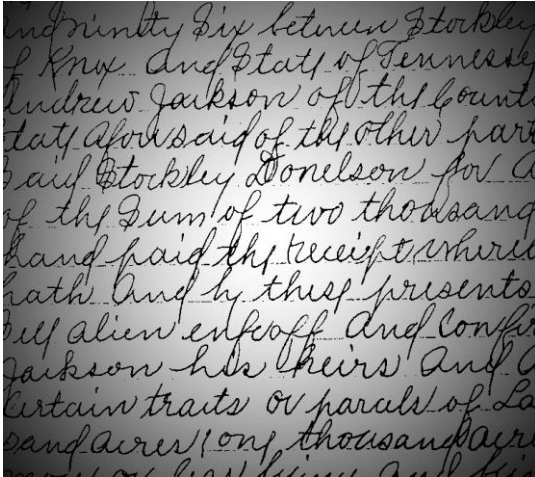 and ninety Six between Stockley
of Knox and State of Tennessee
Andrew Jackson of the Count
tate aforesaid of the other part
Said Stockley Donelson for a
of the Sum of two thousand
hand paid the receipt where
hath and by these presents
Sell alien enfeoff and Confir
Jackson his heirs and a
Certain traits or parcels of La
sand acres (one thousand acre
more or less being and bein